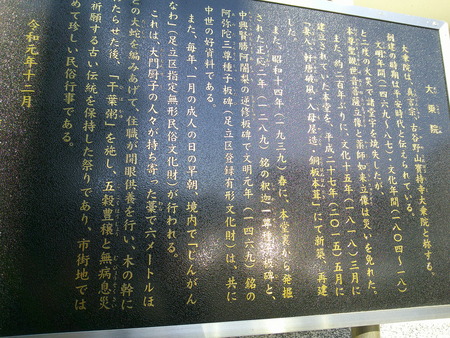 大乗院
大乗院は、真言宗、古谷野山實持寺大乗院と称する。
創建の時期は平安時代と伝えられている。
文明年間(一四六九〜八七)・文化年間(一八〇四〜一八)
と二度の火災で諸堂宇を焼失したが、
本尊聖観世音菩薩立像と薬師如来立像は災いを免れた。
また、約二百年ぶりに、文化十五年(一八一八)三月に
建立されていた本堂を、平成二十七年(二〇一五)五月に
妻入・軒唐破風・入母屋造・銅板本葺」にて新築、再建
した。
また、昭和十四年(一九三九)春に、本堂裏から発掘
された正応二年(一二八九)銘の釈迦一尊種子板碑と、
中興賢勝阿闍梨の逆修板碑で文明元年(一四六九)銘の
阿弥陀三尊種子板碑(足立区登録有形文化財)は、共に
中世の好資料である。
また、毎年、一月の成人の日の早朝、境内で「じんがん
なわ」(足立区指定無形民俗文化財)が行われる。
これは、大門厨子の人々が持ち寄った藁で六メートルほ
どの大蛇を編みあげて、住職が開眼供養を行い、木の幹に
たらせた後、「干葉粥」を施し、五穀豊穣と無病息災
祈願する古い伝統を保持した祭りであり、市街地では
めて珍しい民俗行事である。
令和元年十二月